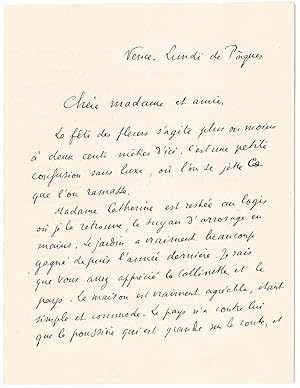 Vence. Lundi de Pâques
Chère madame et amie,
La fête des fleurs s'agite plus ou moins
à deux cents mètres d'ici. C'est une petite
confusion sans luxe, où l'on se jette ce
que l'on ramasse.
Madame Catherine est restée au logis
où je la retrouve, le tuyau d'arrosage en
mains. Le jardin a vraiment beaucoup
gagné depuis l'année dernière. Je sais
que vous avez apprécié la collinette et le
pays. La maison est vraiment agréable, étant
simple et commode. Le pays n'a contre lui
que la poussière qui est grande sur la route, et